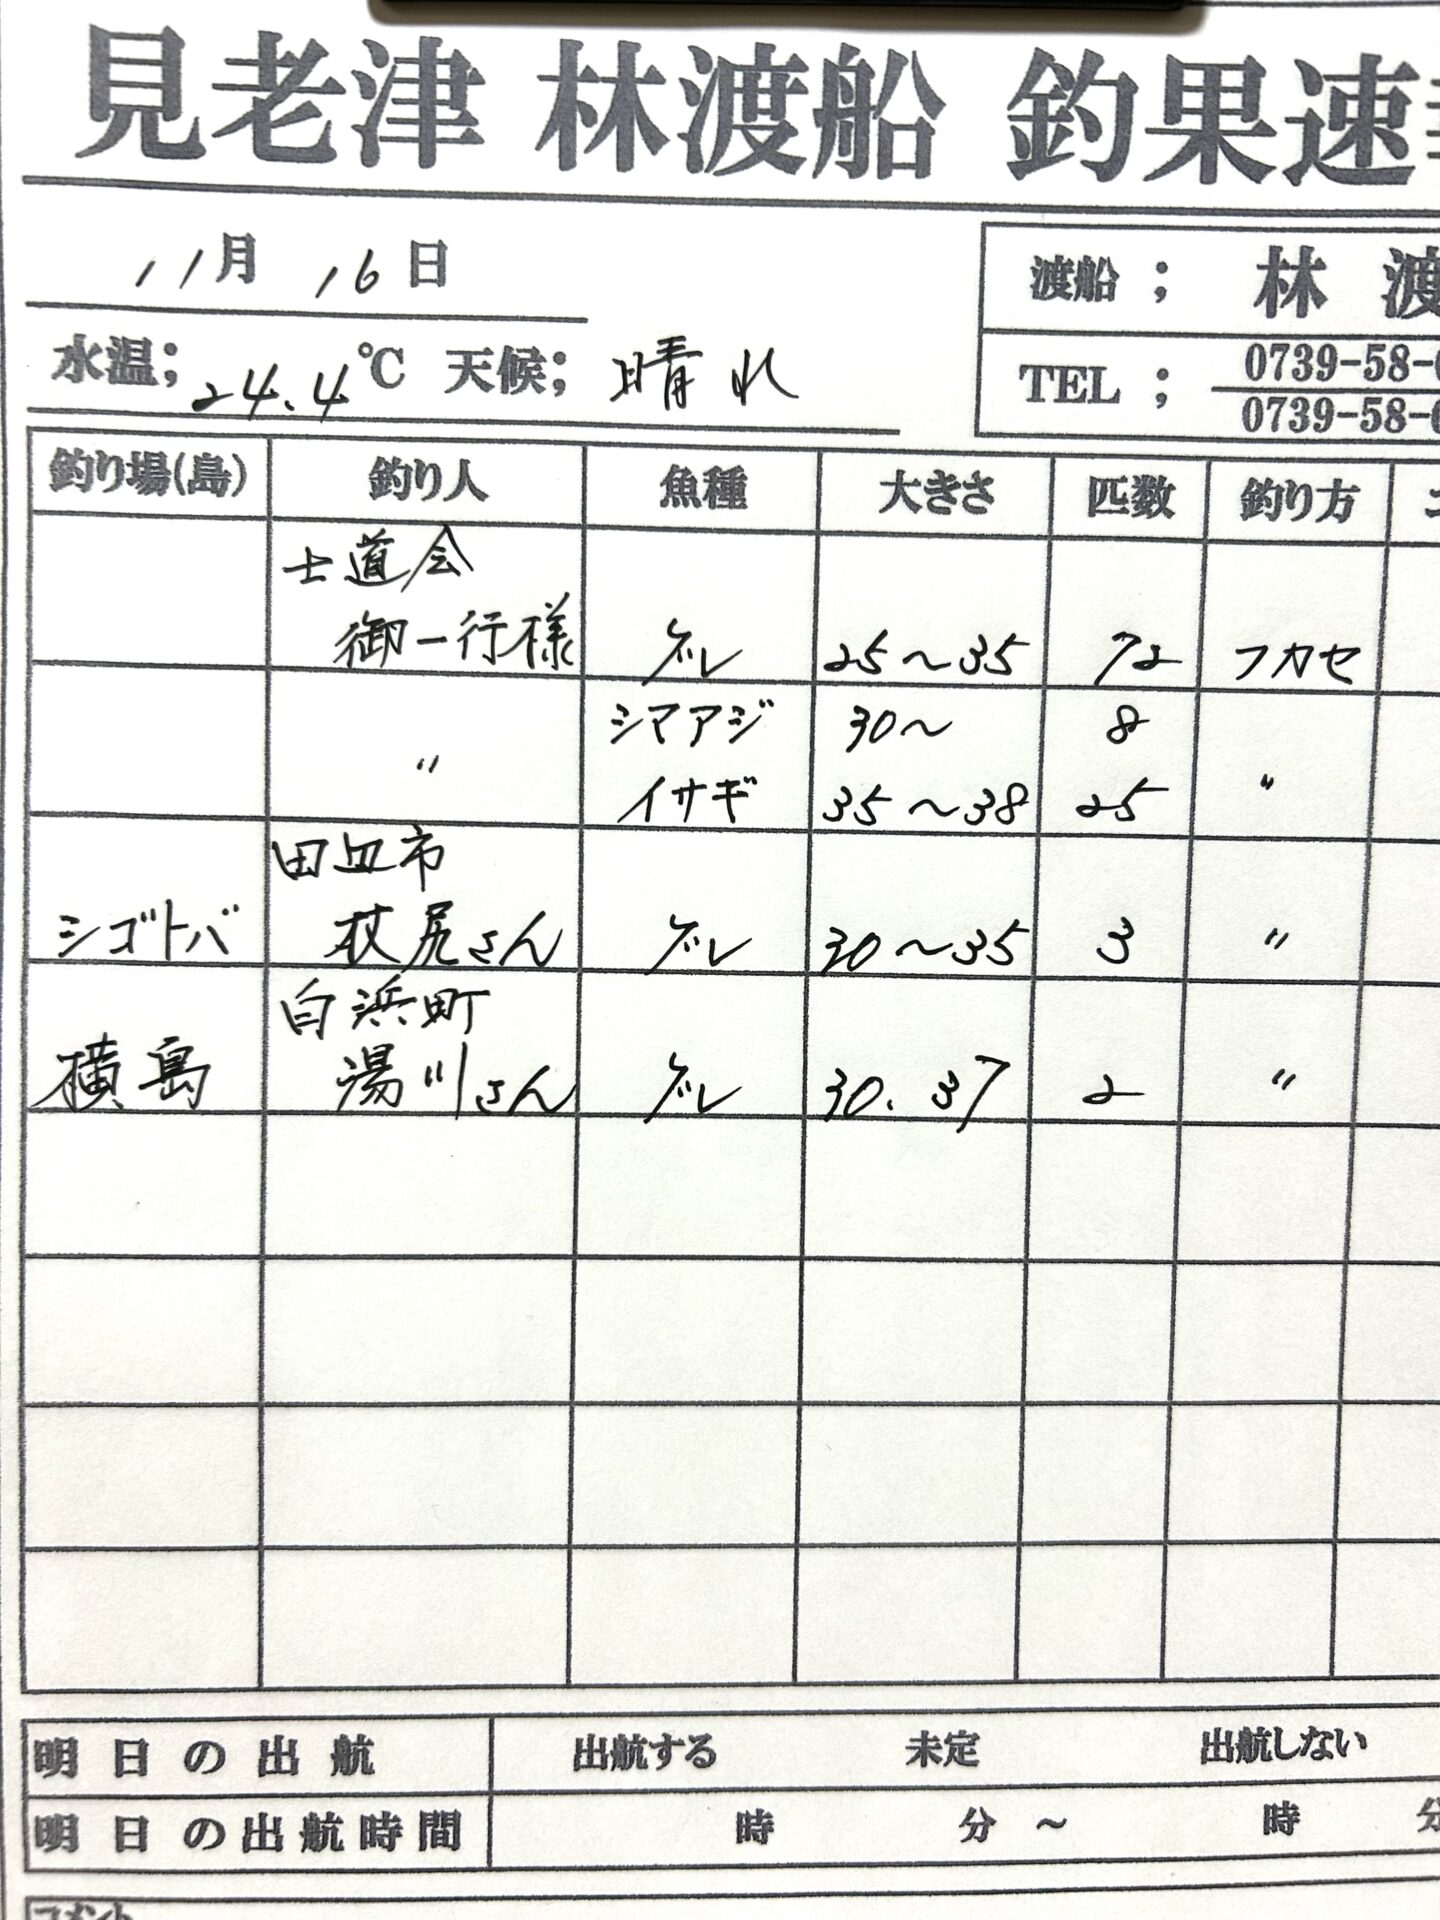 見老津 林渡船 釣果速
11月 16日
渡船 ; 林 渡
水温; 24.4℃ 天候; 晴れ
TEL ; 0739-58-
0739-58-
釣り場(島) 釣り人 魚種 大きさ 匹数 釣り方
士道会
御一行様 グレ 25〜35 72 フカセ
シマアジ 30〜 8
〃 イサギ 35〜38 25 〃
田辺市
シゴトバ 杖尻さん グレ 30〜35 3 〃
白浜町
横島 湯川さん グレ 30、37 2 〃
明日の出航 出航する 未定 出航しない
明日の出航時間 時 分〜 時 分
コメント